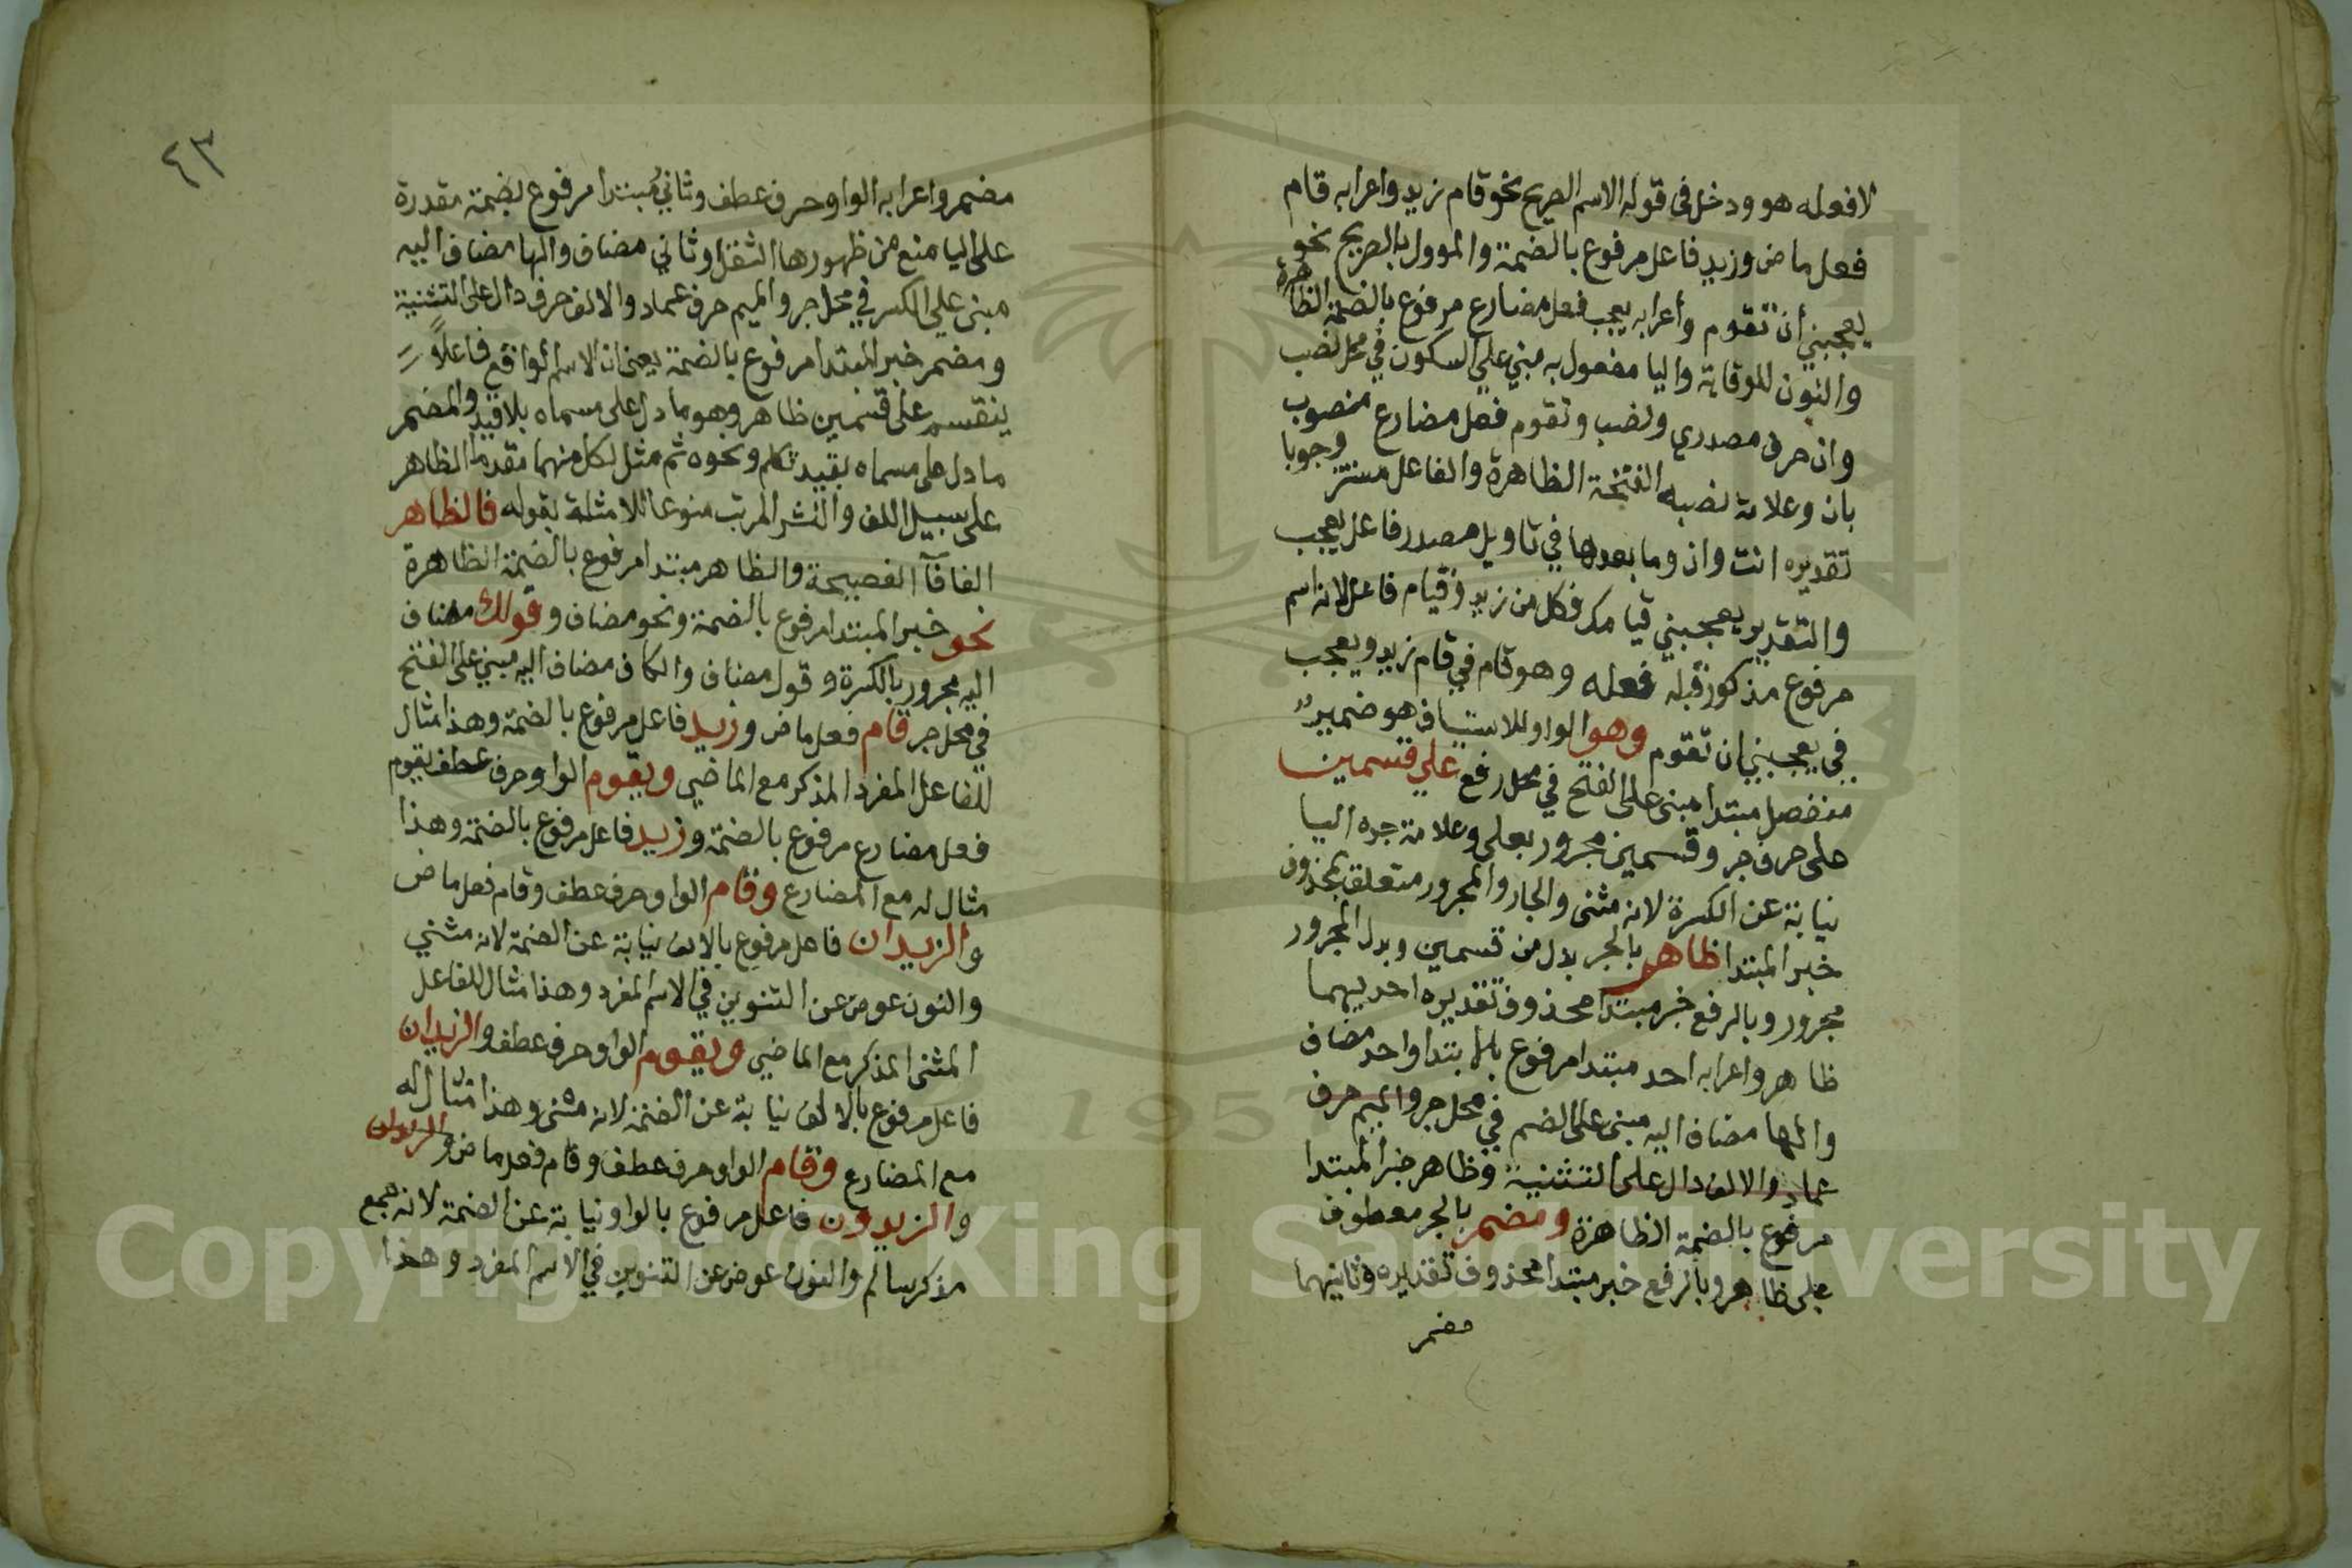 لا فعله هو ودخل فى قوله الاسم الصريح نحو قام زيد واعرابه قام
فعل ماض وزيد فاعل مرفوع بالضمة والموول بالصريح نحو
يعجبني أن تقوم وأعرابه يعجب فعل مضارع مرفوع بالضمة الظاهرة
والنون للوقاية واليا مفعول به مبني علي السكون في محل نصب
وان حرف مصدري ونصب وتقوم فعل مضارع منصوب
بان وعلامة نصبه الفتحة الظاهرة والفاعل مستتر وجوبا
تقديره انت وان وما بعدها في تاويل مصدر فاعل يعجب
والتقدير يعجبني قيامك فكل من زيد وقيام فاعل لانه اسم
مرفوع مذكور قبله فعله وهو قام في قام زيد ويعجب
في يعجبني ان تقوم وهو الواو للاستيناف هو ضمير
منفصل مبتدا مبنى على الفتح في محل رفع علي قسمين
على حرف جر وقسمين مجرور بعلى وعلامة جره اليا
نيابة عن الكسرة لانه مثنى والجار والمجرور متعلق بمحذوف
خبر المبتدا ظاهر بالجر بدل من قسمين وبدل المجرور
مجرور وبالرفع خبر مبتدا محذوف تقديره احديهما
ظاهر واعرابه احد مبتدا مرفوع بالابتدا واحد مضاف
والها مضاف اليه مبنى على الضم في محل جر والميم حرف
عماد والالف دال على التثنية وظاهر خبر المبتدا
مرفوع بالضمة الظاهرة ومضمر بالجر معطوف
على ظاهر وبالرفع خبر مبتدا محذوف تقديره وثانيهما
مضمر
٤٣
مضمر واعرابه الواو حرف عطف وثاني مبتدا مرفوع بضمة مقدرة
على اليا منع من ظهورها الثقل وثاني مضاف والها مضاف اليه
مبنى علي الكسر في محل جر والميم حرف عماد والالف حرف دال على التثنية
ومضمر خبر المبتدا مرفوع بالضمة يعنى ان الاسم الواقع فاعلاً
ينقسم على قسمين ظاهر وهو ما دل على مسماه بلا قيد والمضمر
ما دل على مسماه بقيد تكلم ونحوه ثم مثل لكل منهما مقدما الظاهر
على سبيل اللف والنشر المرتب منوعا للامثلة بقوله فالظاهر
الفا فآ الفصيحة والظاهر مبتدا مرفوع بالضمة الظاهرة
نحو خبر المبتدا مرفوع بالضمة ونحو مضاف وقولك مضاف
اليه مجرور بالكسرة وقول مضاف والكاف مضاف اليه مبني على الفتح
في محل جر قام فعل ماض وزيد فاعل مرفوع بالضمة وهذا مثال
للفاعل المفرد المذكر مع الماضي ويقوم الواو حرف عطف يقوم
فعل مضارع مرفوع بالضمة وزيد فاعل مرفوع بالضمة وهذا
مثال له مع المضارع وقام الواو حرف عطف وقام فعل ماض
والزيدان فاعل مرفوع بالالف نيابة عن الضمة لانه مثني
والنون عوض عن التنوين في الاسم المفرد وهذا مثال للفاعل
المثنى المذكر مع الماضي ويقوم الواو حرف عطف والزيدان
فاعل مرفوع بالالف نيابة عن الضمة لانه مثنى وهذا مثال له
مع المضارع وقام الواو حرف عطف وقام فعل ماض والزيدون
والزيدون فاعل مرفوع بالواو نيابة عن الضمة لانه جمع
مذكر سالم والنون عوض عن التنوين في الاسم المفرد وهذا
1957
Copyright © King Saud University